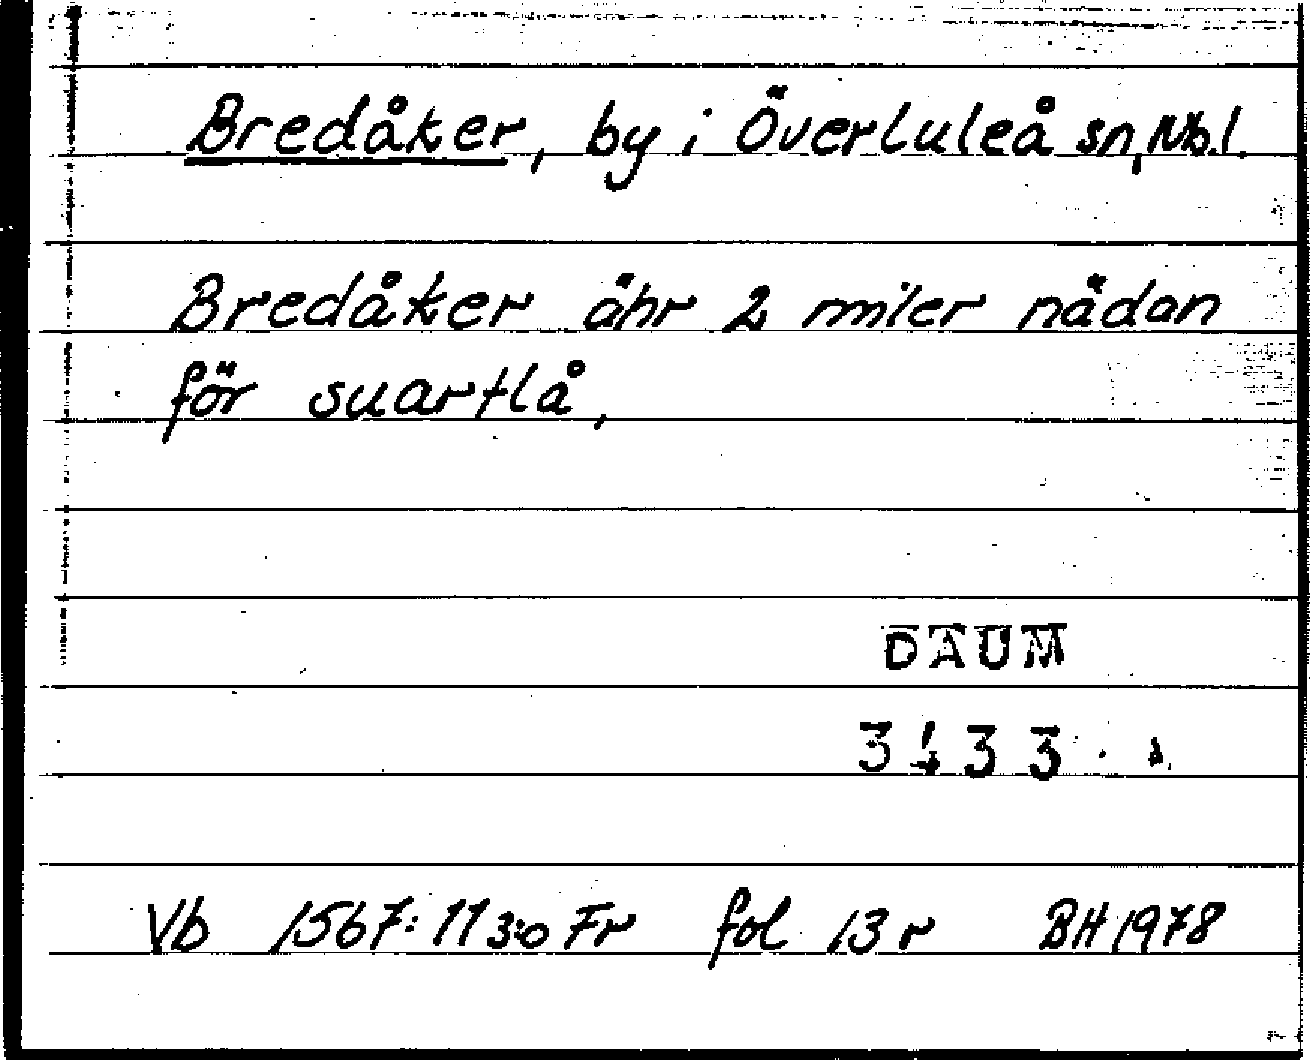 Bredåker, by i Överluleå sn, Nb.l.
Bredåker ähr 2 miler nädan
för suartlå,
DAUM
3433
Vb 1567:11 3:o Fr fol 13 r BH 1978